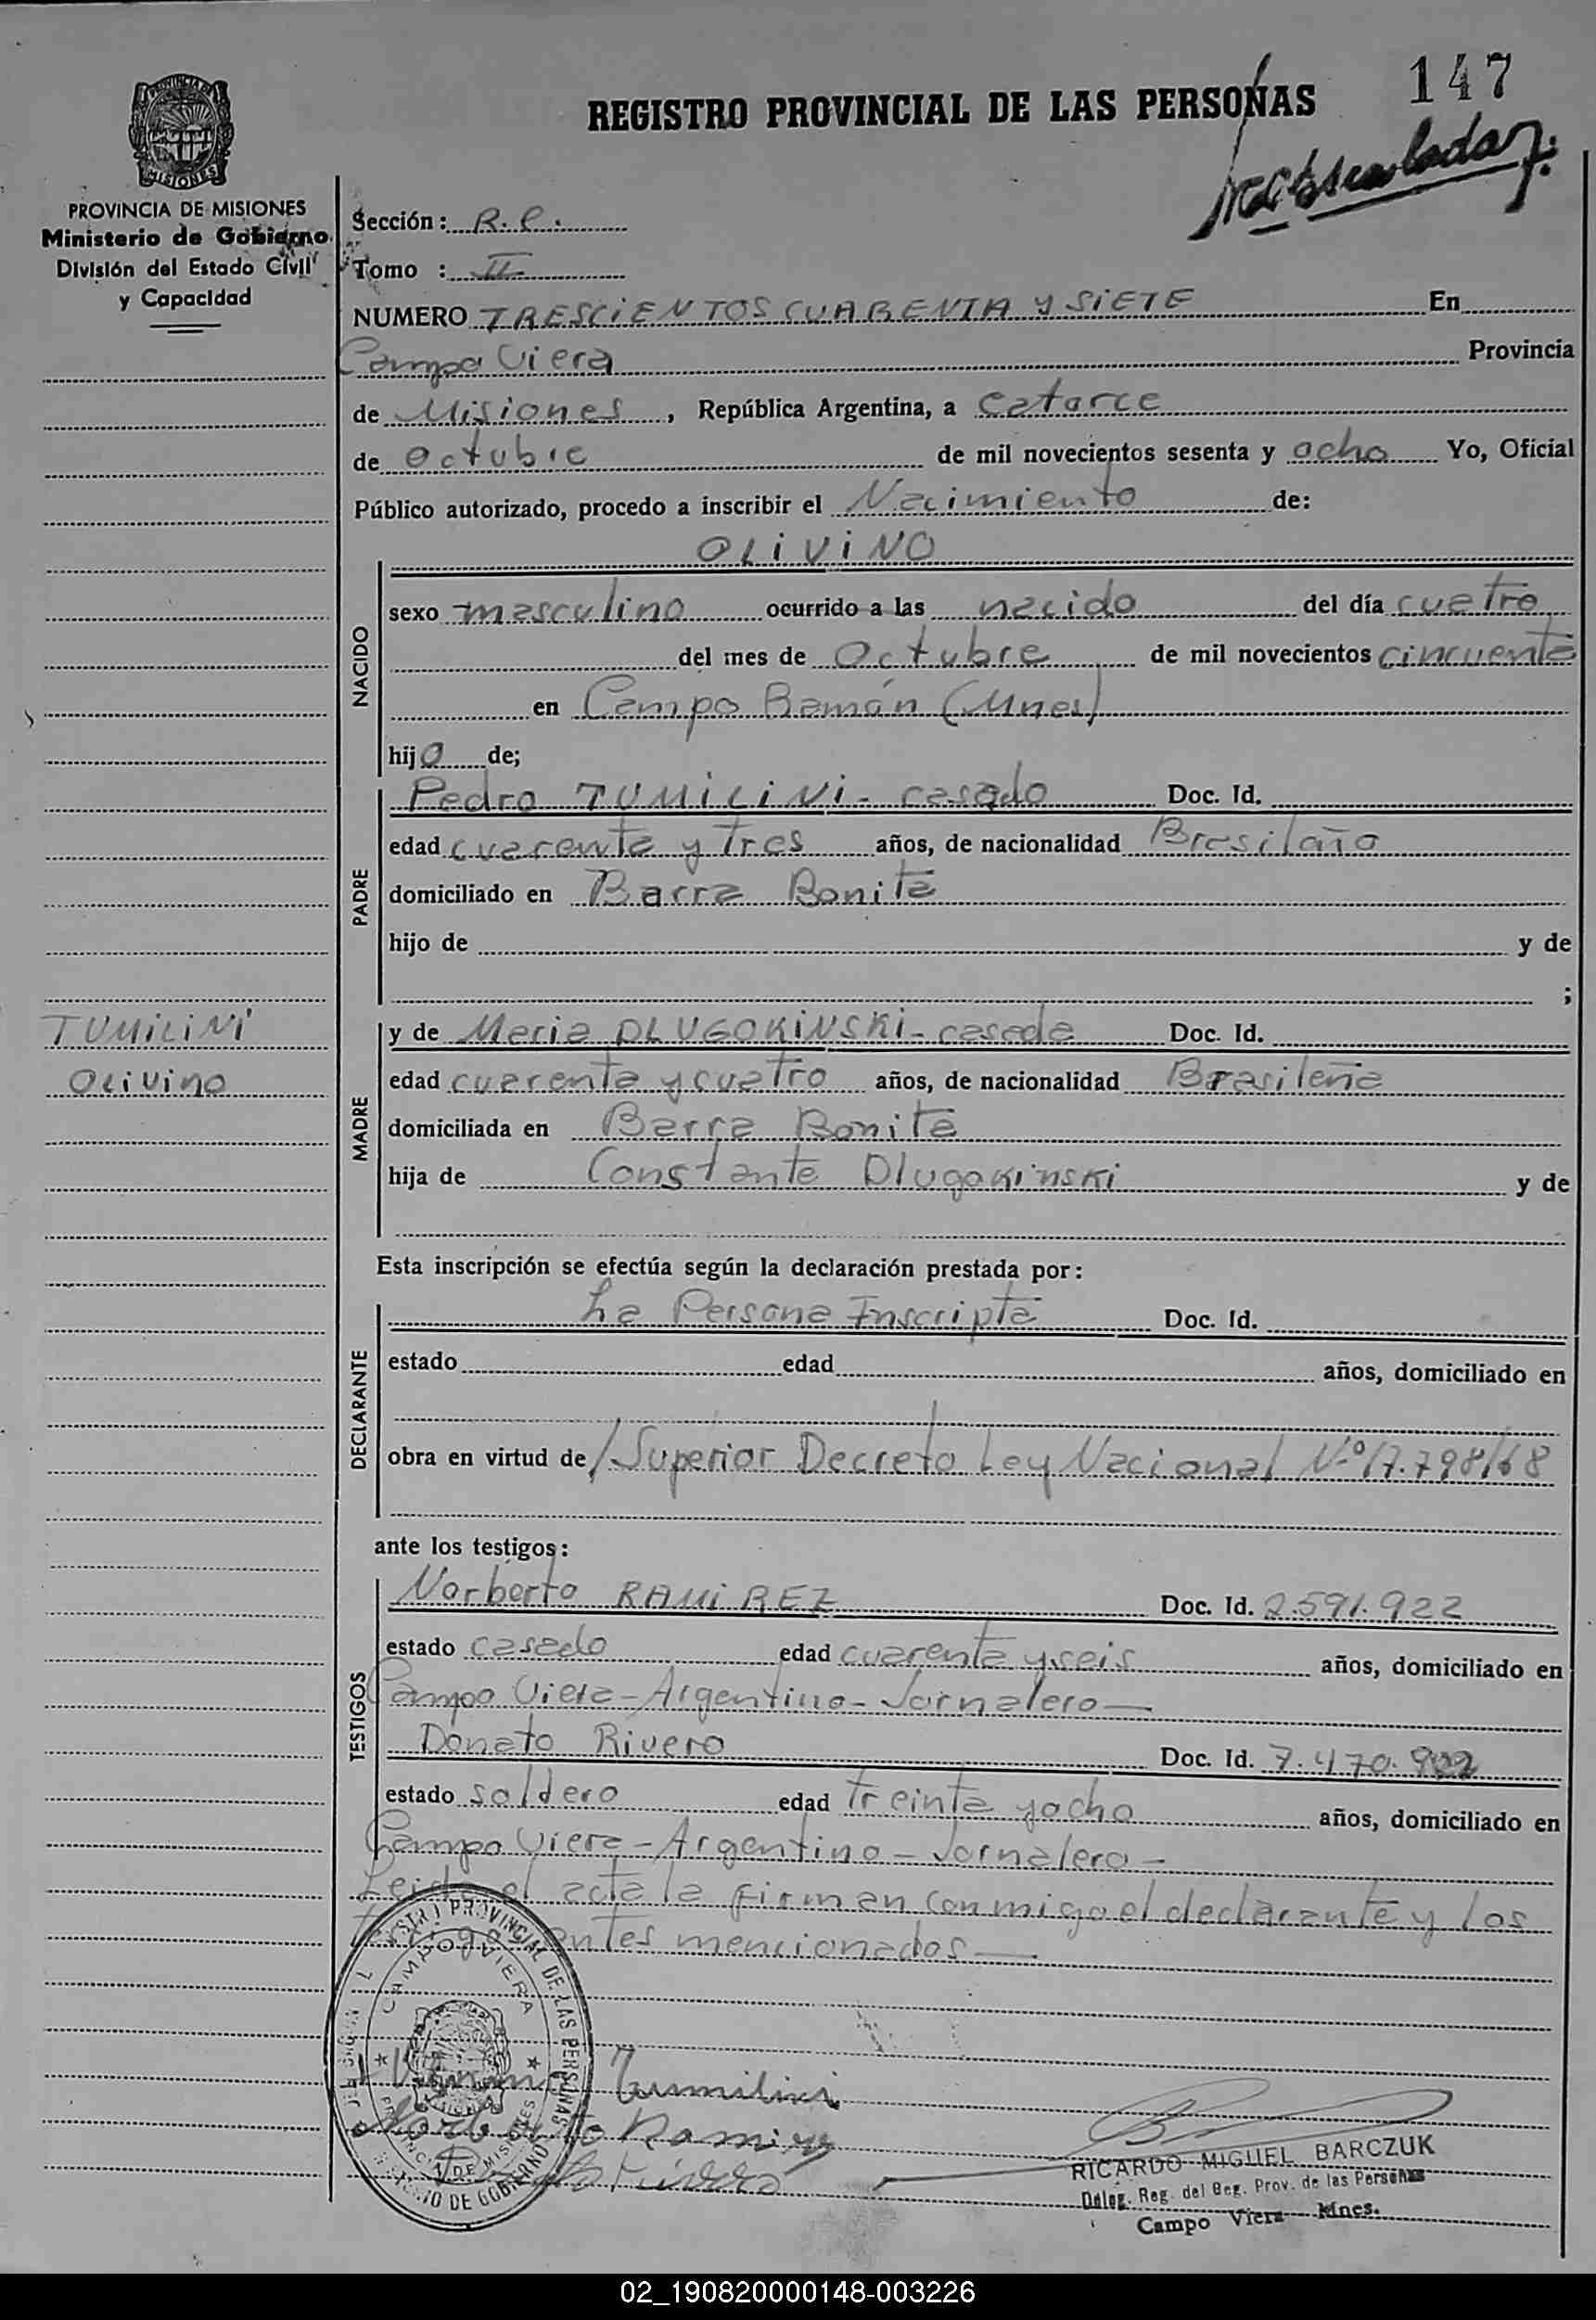 147
REGISTRO PROVINCIAL DE LAS PERSONAS
PROVINCIA DE MISIONES
MISIONES
PROVINCIA DE MISIONES
Ministerio de Gobierno
División del Estado Civil
y Capacidad
Sección: R. C.
Tomo : II
NUMERO TRESCIENTOS CUARENTA Y SiETE En
Campo Viera Provincia
de Misiones, República Argentina, a catorce
de octubre de mil novecientos sesenta y ocho Yo, Oficial
Público autorizado, procedo a inscribir el Nacimiento de:
OLiViNO
NACIDO
sexo masculino ocurrido a las nacido del día cuatro
del mes de Octubre de mil novecientos cincuenta
en Campo Ramón (Mnes)
hijo de;
PADRE
Pedro TUMiLiNi - casado Doc. Id.
edad cuarenta y tres años, de nacionalidad Brasilaño
domiciliado en Barra Bonita
hijo de y de
;
TUMiLiNi
OLiVino
MADRE
y de Maria DLUGOKiNSKi - casada Doc. Id.
edad cuarenta y cuatro años, de nacionalidad Brasileña
domiciliada en Barra Bonita
hija de Constante Dlugokinski y de
Esta inscripción se efectúa según la declaración prestada por:
DECLARANTE
La Persona Inscripta Doc. Id.
estado edad años, domiciliado en
obra en virtud de / Superior Decreto Ley Nacional Nº 17.798/68
ante los testigos:
TESTIGOS
Norberto RAMiREZ Doc. Id. 2.591.922
estado casado edad cuarenta y seis años, domiciliado en
Campo Viera - Argentino - Jornalero —
Donato Rivero Doc. Id. 7.470.
estado soldero edad treinta y ocho años, domiciliado en
Campo Viera - Argentino - Jornalero -
Leida el acta la firman conmigo el declarante y los
mencionados —
REGISTRO PROVINCIAL DE LAS PERSONAS
CAMPO VIERA
PROVINCIA DE MISIONES
MINISTERIO DE GOBIERNO
Tumilini
Norberto Ramirez
Rivero
RICARDO MIGUEL BARCZUK
Deleg. Reg. del Reg. Prov. de las Personas
Campo Viera Mnes.
02_190820000148-003226